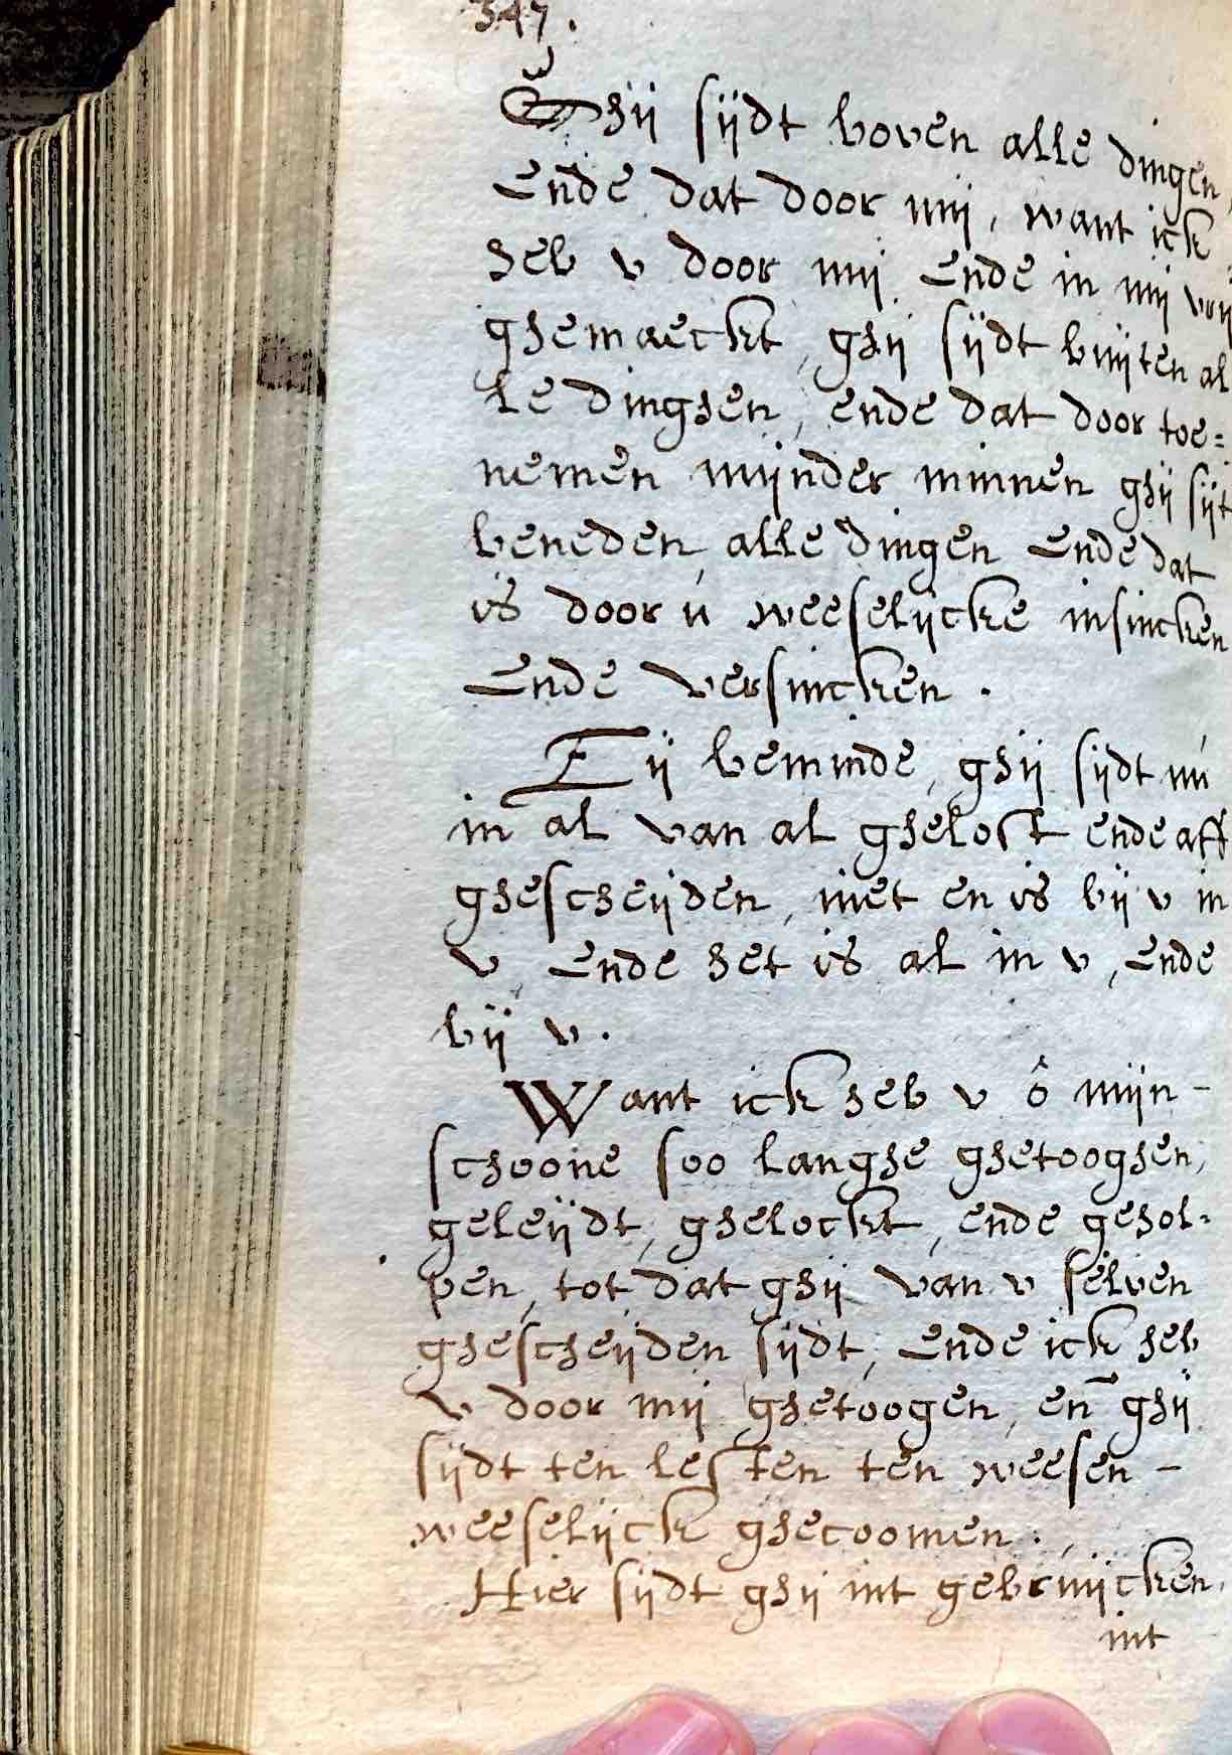 347.
Ghij sijdt boven alle dingen,
Ende dat door mij, want ick
heb v door mij Ende in mij vrij
ghemaeckt, ghij sijdt buijten al
le dinghen, ende dat door toe=
nemen mijnder minnen ghij sijt
beneden, alle dingen Ende dat
is door ú weeselijcke insincken
Ende versincken.
Eij beminde, ghij sijdt nú
in al van al ghelost ende aff
ghescheijden, niet en is bij v in
v, Ende het is al in v, Ende
bij v.
Want ick heb v ô mijn-
schoone soo langhe ghetooghen,
geleijdt, ghelockt, ende gehol-
pen, tot dat ghij van v selven
ghescheijden sijdt, Ende ick heb
v door mij ghetoogen, en̄ ghij
sijdt ten lesten ten weesen-
weeselijck ghecoomen.
Hier sijdt ghij int gebruijcken,
int